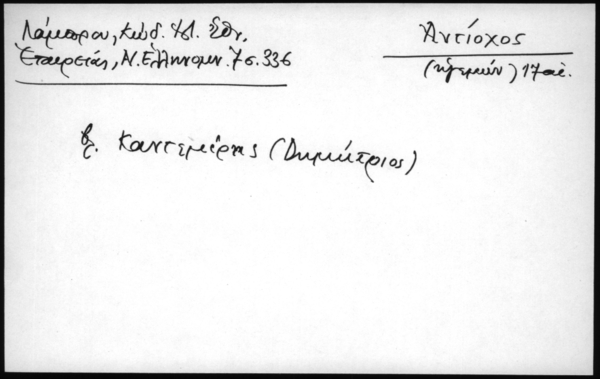 Λάμπρου, Κώδ. Ἱστ. Ἐθν.
Ἑταιρείας, Ν. Ἑλληνομν. 7 σ. 336
Ἀντίοχος
(ἡγεμών) 17 αἰ.
βλ. Καντεμίρης (Δημήτριος)